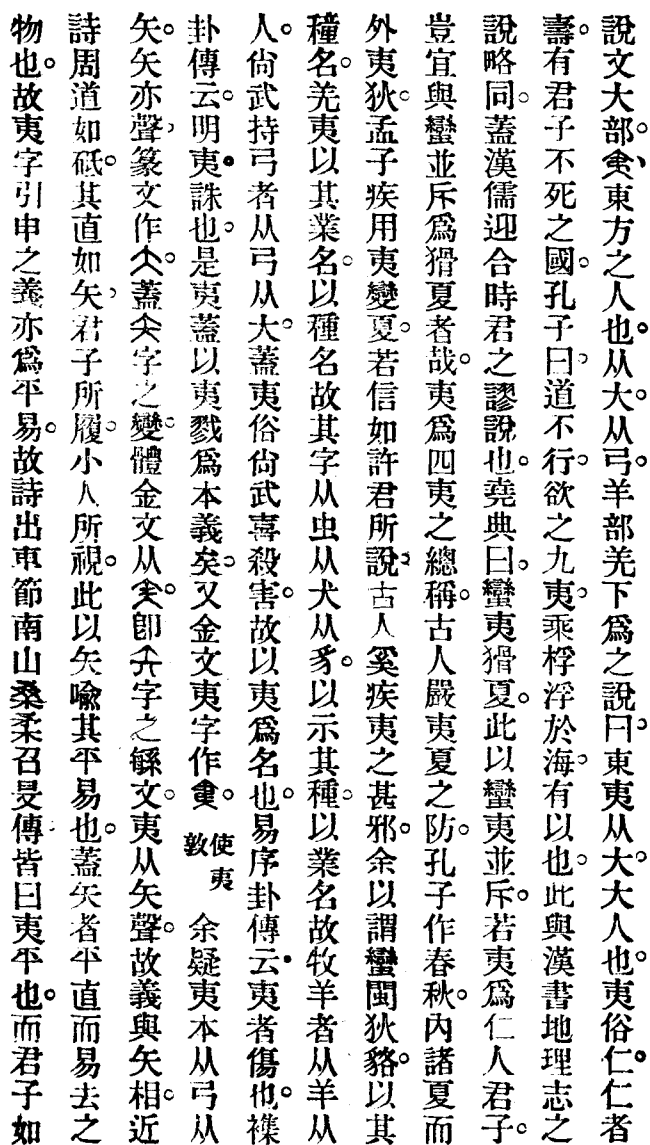 說文大部。夷、東方之人也。从大。从弓。羊部羌下爲之說曰、東夷从大。大人也。夷俗仁。仁者
壽。有君子不死之國。孔子曰、道不行。欲之九夷。乘桴浮於海。有以也。此與漢書地理志之
說略同。蓋漢儒迎合時君之謬說也。堯典曰。蠻夷猾夏。此以蠻夷並斥。若夷爲仁人君子。
豈宜與蠻並斥爲猾夏者哉。夷爲四夷之總稱。古人嚴夷夏之防。孔子作春秋。內諸夏而
外夷狄。孟子疾用夷變夏。若信如許君所說。古人奚疾夷之甚邪。余以謂蠻閩狄貉。以其
種名。羌夷以其業名。以種名故其字从虫从犬从豸。以示其種。以業名故牧羊者从羊从
人。尙武持弓者从弓从大。蓋夷俗尙武喜殺害。故以夷爲名也。易序卦傳云。夷者傷也。襍
卦傳云。明夷。誅也。是夷蓋以夷戮爲本義矣。又金文夷字作 使夷敦 余疑夷本从弓从
矢。矢亦聲、篆文作大。蓋矢字之變體金文从 卽 字之緐文。夷从矢聲。故義與矢相近。
詩周道如砥。其直如矢、君子所履。小人所視。此以矢喩其平易也。蓋矢者平直而易去之
物也。故夷字引申之義亦爲平易。故詩出車節南山桑柔召旻傳皆曰夷平也。而君子如